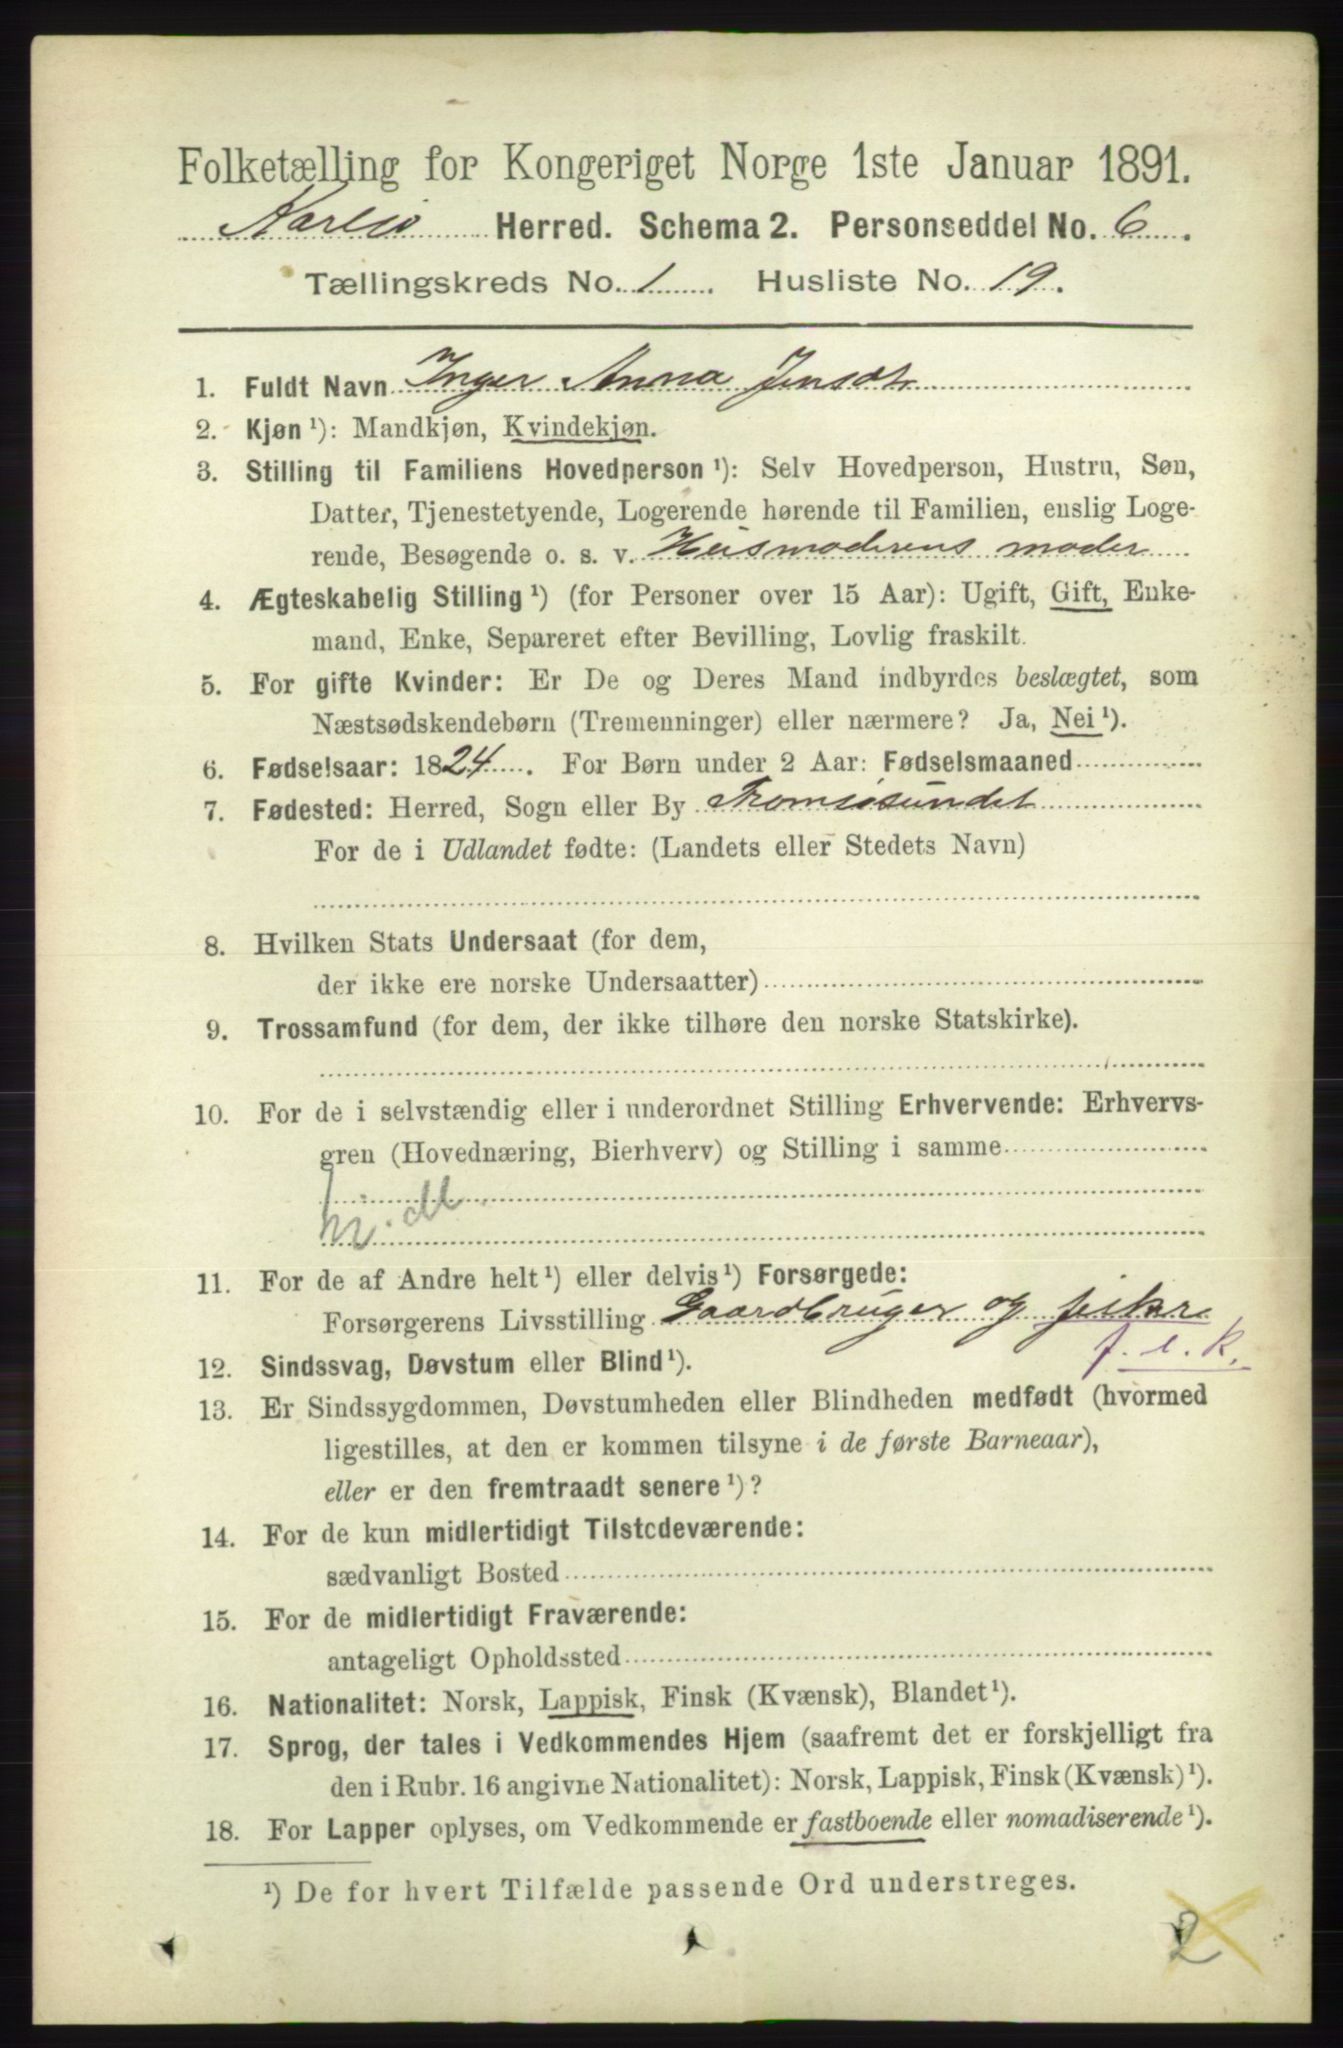 Folketælling for Kongeriget Norge 1ste Januar 1891.
Karlsø Herred. Schema 2. Personseddel No. 6.
Tællingskreds No. 1. Husliste No. 19.
1. Fuldt Navn Inger Anna Jensdtr
2. Kjøn ¹): Mandkjøn, Kvindekjøn.
3. Stilling til Familiens Hovedperson ¹): Selv Hovedperson, Hustru, Søn,
Datter, Tjenestetyende, Logerende hørende til Familien, enslig Loge-
rende, Besøgende o. s. v. Husmoderens moder
4. Ægteskabelig Stilling ¹) (for Personer over 15 Aar): Ugift, Gift, Enke-
mand, Enke, Separeret efter Bevilling, Lovlig fraskilt.
5. For gifte Kvinder: Er De og Deres Mand indbyrdes beslægtet, som
Næstsødskendebørn (Tremenninger) eller nærmere? Ja, Nei ¹).
6. Fødselsaar: 1824. For Børn under 2 Aar: Fødselsmaaned
7. Fødested: Herred, Sogn eller By Tromsøsundet
For de i Udlandet fødte: (Landets eller Stedets Navn)
8. Hvilken Stats Undersaat (for dem,
der ikke ere norske Undersaatter)
9. Trossamfund (for dem, der ikke tilhøre den norske Statskirke).
10. For de i selvstændig eller i underordnet Stilling Erhvervende: Erhvervs-
gren (Hovednæring, Bierhverv) og Stilling i samme
11. For de af Andre helt ¹) eller delvis ¹) Forsørgede:
Forsørgerens Livsstilling Gaardbruger og fisker
f. l. k.
12. Sindssvag, Døvstum eller Blind ¹).
13. Er Sindssygdommen, Døvstumheden eller Blindheden medfødt (hvormed
ligestilles, at den er kommen tilsyne i de første Barneaar),
eller er den fremtraadt senere ¹)?
14. For de kun midlertidigt Tilstedeværende:
sædvanligt Bosted
15. For de midlertidigt Fraværende:
antageligt Opholdssted
16. Nationalitet: Norsk, Lappisk, Finsk (Kvænsk), Blandet ¹).
17. Sprog, der tales i Vedkommendes Hjem (saafremt det er forskjelligt fra
den i Rubr. 16 angivne Nationalitet): Norsk, Lappisk, Finsk (Kvænsk) ¹).
18. For Lapper oplyses, om Vedkommende er fastboende eller nomadiserende ¹).
¹) De for hvert Tilfælde passende Ord understreges.
2